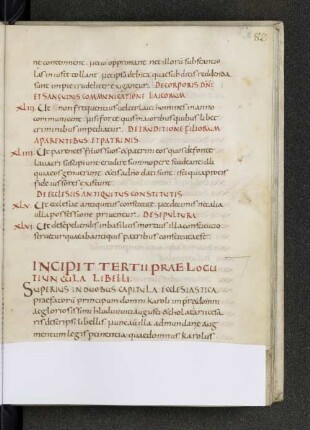 ne contemnent. neq; opprimant nec illorum substantio
las iniuste tollant. nec ipsa debita quae a subditis reddenda
sunt impie crudeliter exigantur. DE CORPORIS DNI
ET SANGUINIS COMMUNICATIONE LAICORUM
XLIII. Ut si non frequentius uel ter laici homines in anno
communicent nisi forte quis maioribus quibuslibet
criminibus impediatur. DE ERUDITIONE FILIORUM
A PARENTIBUS ET PATRINIS
XLIIII. Ut parentes filios suos et patrini eos quos de fonte
lauacri suscipiunt erudire summopere studeant illi
quia eos genuerunt et eis a dno dati sunt. isti quia pro eis
fideiussores existunt
DE ECCLESIIS ANTIQUITUS CONSTITUTIS
XLV. Ut ecclesiae antiquitus constitutae nec decimis nec alia
ulla possessione priuentur. DE SEPULTURA
XLVI. Ut de sepeliendis in basilicis mortuis illa constitutio
seruetur quae ab antiquis patribus constituta est.
INCIPIT TERTII PRAELOCU
TIUNCULA LIBELLI.
SUPERIUS IN DUOBUS CAPITULA ECCLESIASTICA
praefatorum principum domni karoli imp et domni
ac gloriosissimi hludouuici augusti et hlotharii caesa
ris descripsi libellis. nunc autem illa ad mundanae aug
mentum legis pertinentia quae domnus karolus